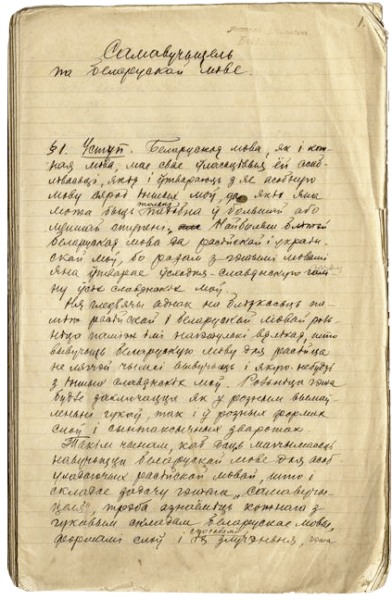 Самавучыцель
па беларускай мове.
§1. Уступ. Беларуская мова, як і кож-
ная мова, мае свае ўласцівыя ёй асаб-
лівасьці, якія і ўтвараюць з яе асобную
мову сярод іншых моў, да якіх яна
можа быць толькі падобна ў большай або
меншай ступені. Найболей блізка
беларуская мова да расійскай і украін-
скай моў, бо разам з гэтымі мовамі
яна ўтварае ўсходня-славянскую галі-
ну ўсіх славянскіх моў.
Ня гледзячы аднак на блізкасьць па-
між расійскай і беларускай мовай роз-
ніца паміж імі настолькі вялікая, што
вывучыць беларускую мову для расійца
не лягчэй чымся вывучыць і якую-небудзь
з іншых славянскіх моў. Розьніца гэта
будзе заключацца як у розным вымаў-
леньні гукаў, так і ў розных формах
слоў і сынтаксычных зваротах.
Такім чынам, каб даць магчымасьць
навучыцца беларускай мове для асоб
уладаючых расійскай мовай, што і
складае задачу гэтага „самавучы-
целя", трэба азнаёміць кожнага з
гукавым складам беларускае мовы,
формамі слоў і спосабамі іх злучэньня, гэта